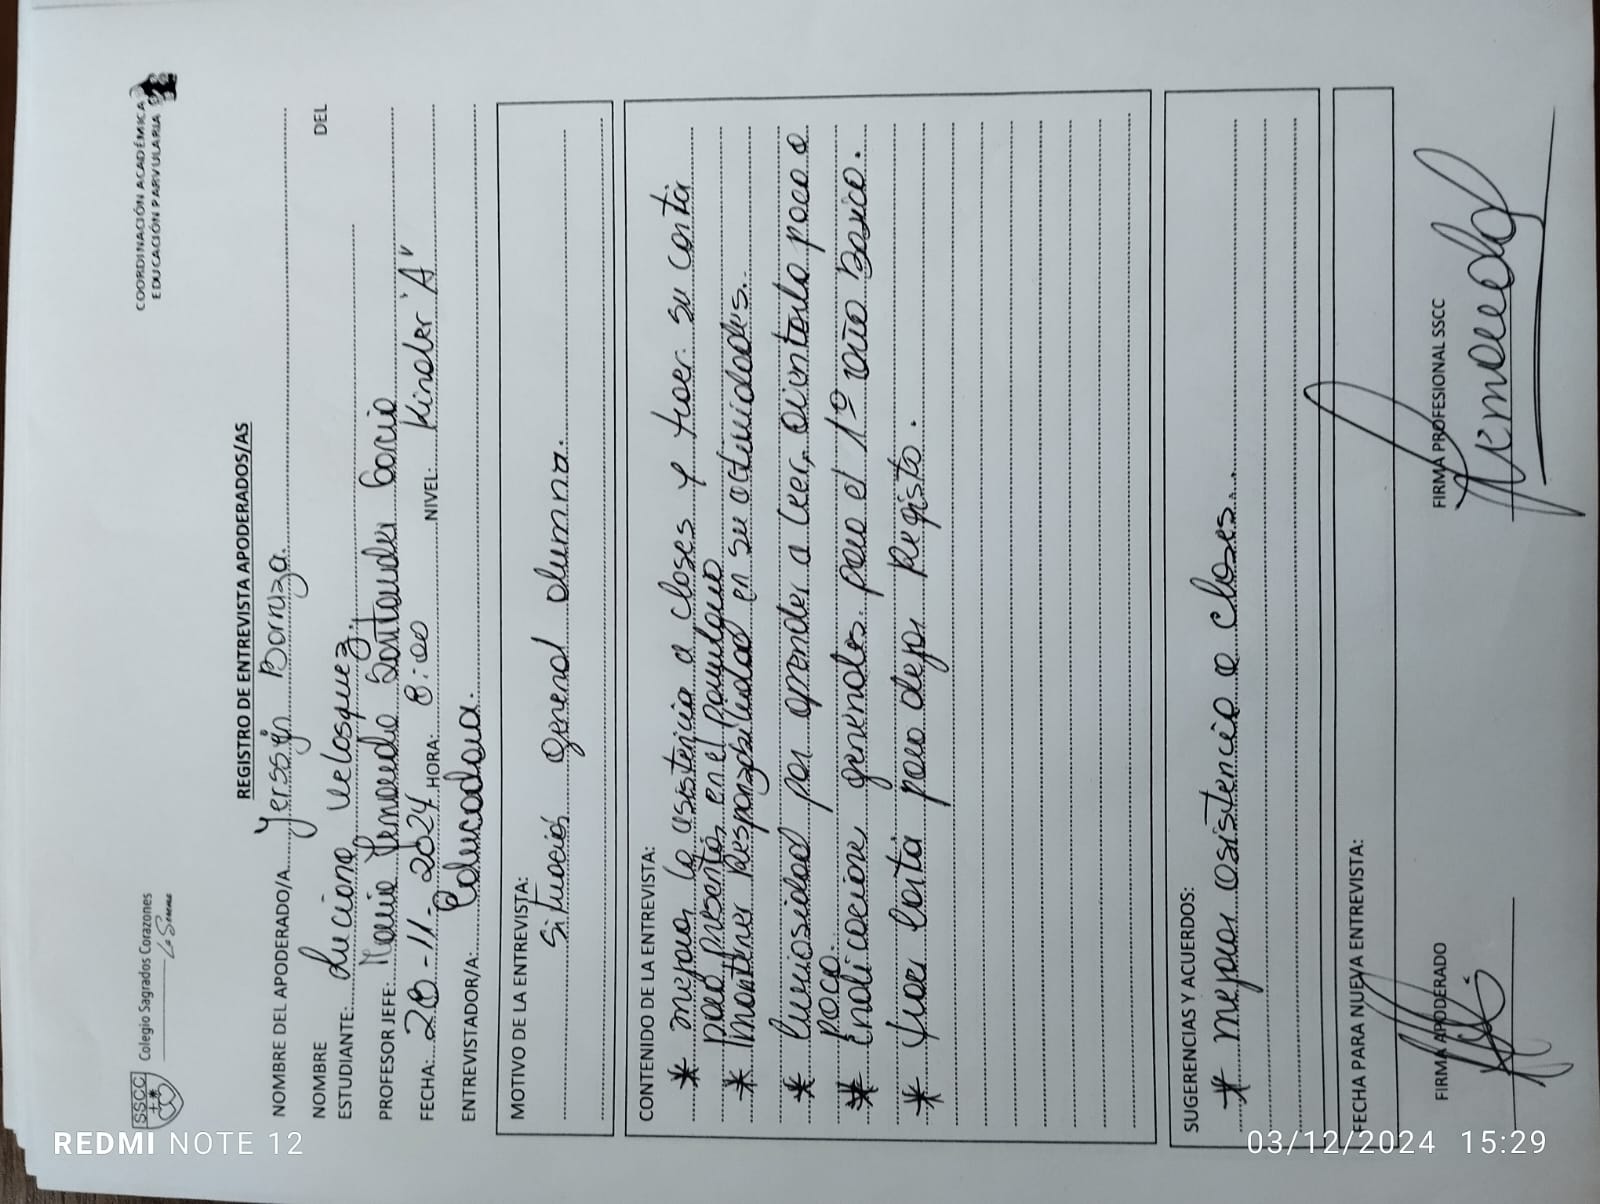 SSCC
Colegio Sagrados Corazones
La Serena
COORDINACIÓN ACADÉMICA
EDUCACIÓN PARVULARIA
REGISTRO DE ENTREVISTA APODERADOS/AS
NOMBRE DEL APODERADO/A Yerssyn Borruza.
NOMBRE DEL
ESTUDIANTE: Luciana Velasquez.
PROFESOR JEFE: Maria Fernanda Santander Garcia
FECHA: 28-11-2024 HORA: 8:00 NIVEL: Kinder "A"
ENTREVISTADOR/A: Educadora.
MOTIVO DE LA ENTREVISTA:
Situación general alumna.
CONTENIDO DE LA ENTREVISTA:
* mejorar la asistencia a clases y traer su carta
para presentar en el
* Mantener Responzabilidad en su actividades.
* Curiosidad por aprender a leer, poco a
poco.
* Indicacione generales para el 1º año Basico.
* carta para dejar Registo.
SUGERENCIAS Y ACUERDOS:
* Mejorar asistencia a Clases.
FECHA PARA NUEVA ENTREVISTA:
FIRMA APODERADO
FIRMA PROFESIONAL SSCC
REDMI NOTE 12
03/12/2024 15:29